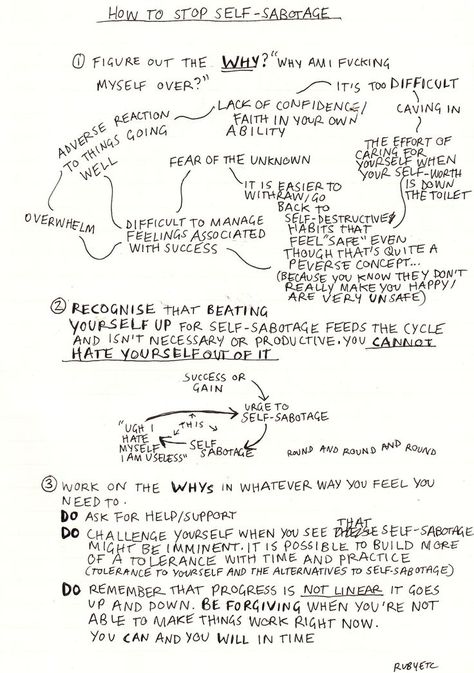 HOW TO STOP SELF-SABOTAGE
① FIGURE OUT THE WHY? "WHY AM I FUCKING
MYSELF OVER?"
IT'S TOO DIFFICULT
LACK OF CONFIDENCE/
FAITH IN YOUR OWN
ABILITY
CAVING IN
ADVERSE REACTION
TO THINGS GOING
WELL
THE EFFORT OF
CARING FOR
YOURSELF WHEN
YOUR SELF-WORTH
IS DOWN
THE TOILET
FEAR OF THE UNKNOWN
IT IS EASIER TO
WITHDRAW/GO
BACK TO
SELF-DESTRUCTIVE
HABITS THAT
FEEL "SAFE" EVEN
THOUGH THAT'S QUITE A
PEVERSE CONCEPT...
(BECAUSE YOU KNOW THEY DON'T
REALLY MAKE YOU HAPPY/
ARE VERY UNSAFE)
OVERWHELM
DIFFICULT TO MANAGE
FEELINGS ASSOCIATED
WITH SUCCESS
② RECOGNISE THAT BEATING
YOURSELF UP FOR SELF-SABOTAGE FEEDS THE CYCLE
AND ISN'T NECESSARY OR PRODUCTIVE. YOU CANNOT
HATE YOURSELF OUT OF IT
SUCCESS OR
GAIN
URGE TO
SELF-SABOTAGE
THIS
"UGH I
HATE
MYSELF
I AM USELESS"
SELF
SABOTAGE
ROUND AND ROUND AND ROUND
③ WORK ON THE WHYS IN WHATEVER WAY YOU FEEL YOU
NEED TO.
DO ASK FOR HELP/SUPPORT
DO CHALLENGE YOURSELF WHEN YOU SEE THAT SELF-SABOTAGE
MIGHT BE IMMINENT. IT IS POSSIBLE TO BUILD MORE
OF A TOLERANCE WITH TIME AND PRACTICE
(TOLERANCE TO YOURSELF AND THE ALTERNATIVES TO SELF-SABOTAGE)
DO REMEMBER THAT PROGRESS IS NOT LINEAR IT GOES
UP AND DOWN. BE FORGIVING WHEN YOU'RE NOT
ABLE TO MAKE THINGS WORK RIGHT NOW.
YOU CAN AND YOU WILL IN TIME
RUBYETC